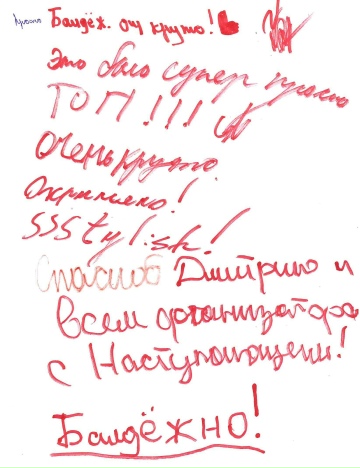 Балдёж. оч круто!
Это было супер просто
ТОП!!!
Очень круто
Охрененно!
SSSty!sh!
Спасиб Дмитрию и
всем организатора
с Наступающем!
Балдёжно!